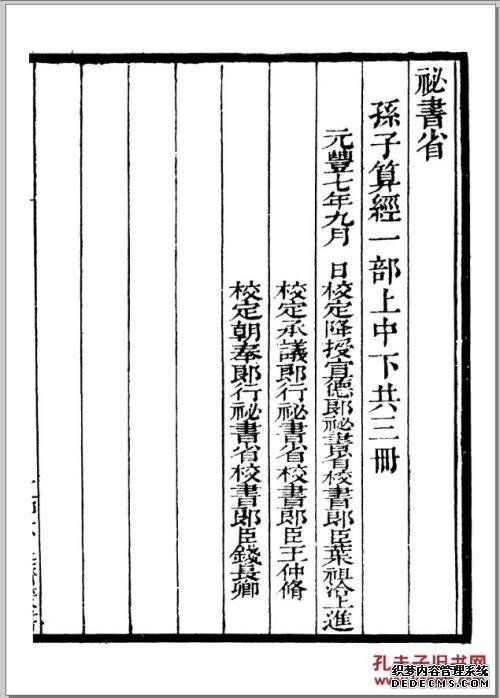 祕書省
孫子算經一部上中下共三冊
元豐七年九月 日校定降授宣德郎祕書省校書郎臣葉祖洽上進
校定承議郎行祕書省校書郎臣王仲脩
校定朝奉郎行祕書省校書郎臣錢長卿
孔夫子旧书网
织梦内容管理系统
DEDECMS.COM